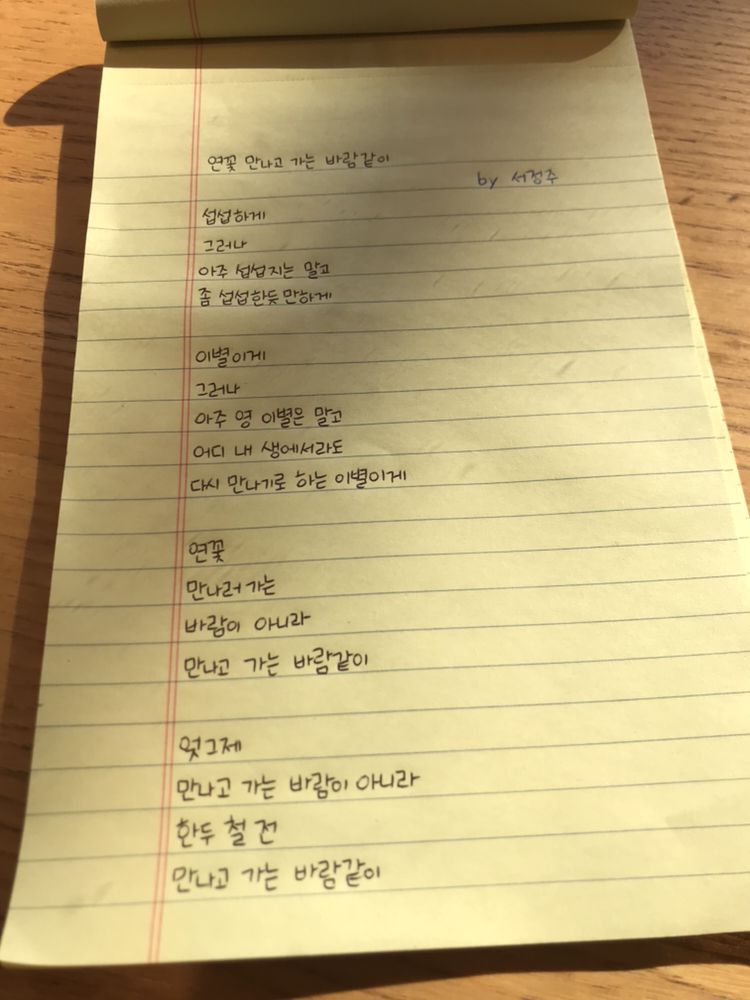 연꽃 만나고 가는 바람같이
by 서정주
섭섭하게
그러나
아주 섭섭지는 말고
좀 섭섭한듯 만하게
이별이게
그러나
아주 영 이별은 말고
어디 내 생에서라도
다시 만나기로 하는 이별이게
연꽃
만나러 가는
바람이 아니라
만나고 가는 바람같이
엊그제
만나고 가는 바람이 아니라
한두 철 전
만나고 가는 바람같이